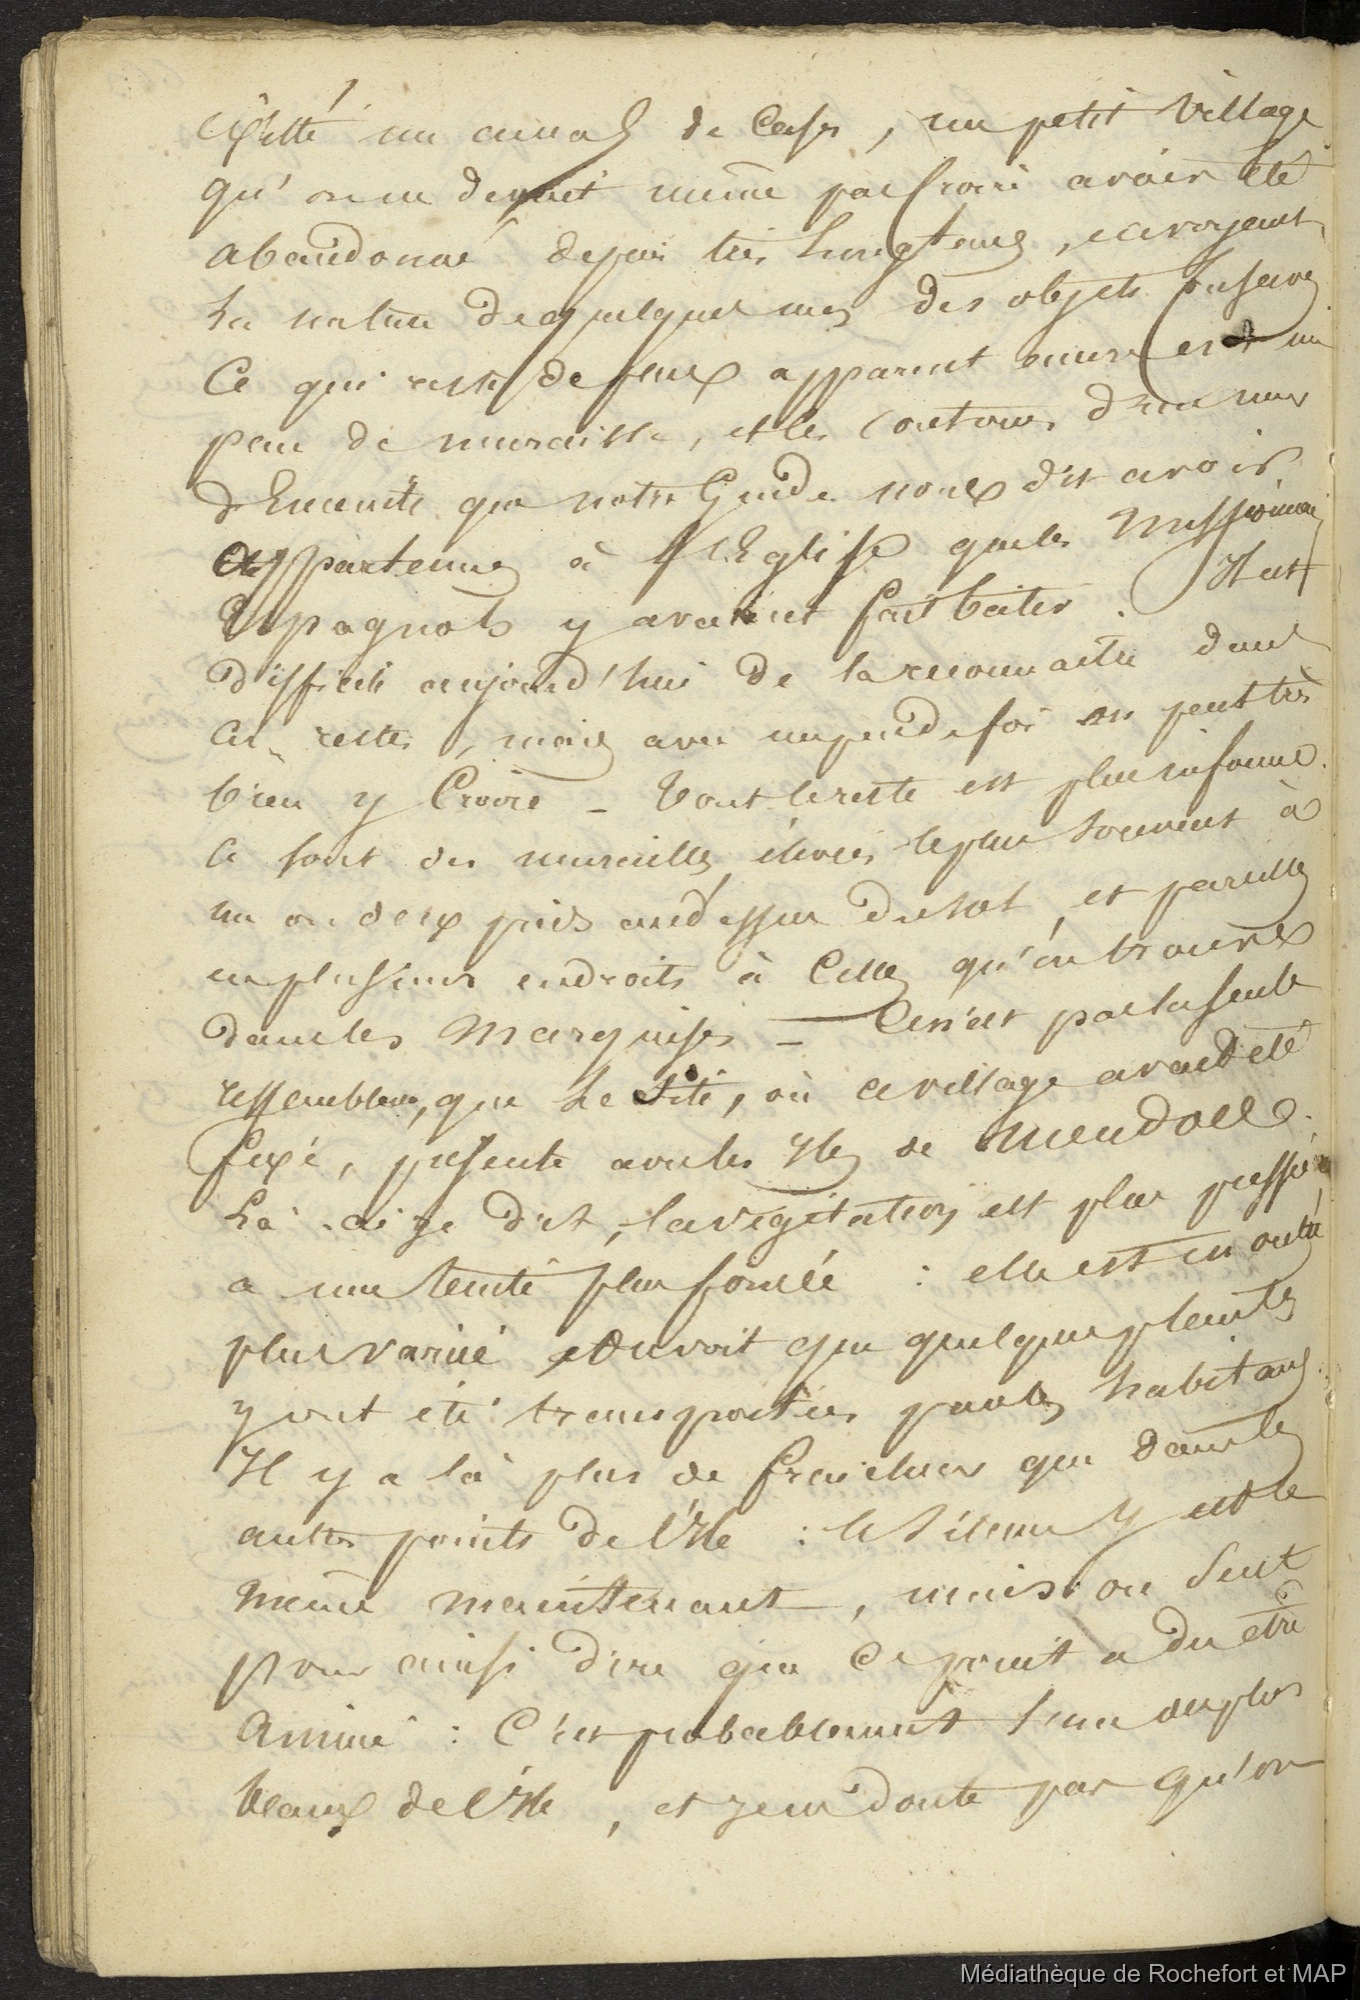 existé un amas de Cases, un petit Village
qu'on ne devrait même pas croire avoir été
abandonné depuis très longtems, en voyant
la nature de quelques uns des objets
Ce qui reste de plus apparent encore est un
pan de muraille, et les contours d'un mur
d'Enceinte que notre Guide nous dit avoir
appartenu à l'Eglise que les Missionnai
Espagnols y avaient fait batir. Il est
difficile aujourd'hui de la reconnaitre dans
ces restes, mais avec un peu de foi on peut très
bien y Croire - Tout le reste est plus informe.
Ce sont des murailles élevées le plus souvent à
un ou deux pieds au dessus du sol, et pareilles
en plusieurs endroits à Celles qu'on trouve
dans les Marquises - Ce n'est pas la seule
ressemblance, que le Site, où ce village avait été
fixé, présente avec les Iles de Mendoce.
Là ai je dit, la végétation est plus pressée
a une teinte plus foncée : elle est en outre
plus variée et on voit que quelques plantes
y ont été transportées par les habitans.
Il y a là plus de fraicheur que dans les
autres points de l'Ile : le silence y est le
même maintenant, mais on sent
pour ainsi dire que ce point a du etre
Animé : C'est probablement l'un des plus
beaux de l'Ile, et je ne doute pas qu'on
Médiathèque de Rochefort et MAP